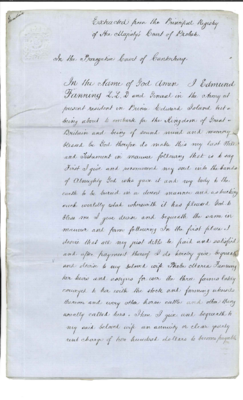 Extracted from the Principal Registry
of Her Majesty's Court of Probate
In the Prerogative Court of Canterbury
In the Name of God Amen I Edmund
Fanning L L D and General in the Army at
present resident in Prince Edward Island but
being about to embark for the Kingdom of Great
Britain and being of sound mind and memory
thanks to God therefor do make this my last Will
and Testament in manner following that is to say
First I give and recommend my soul into the hands
of Almighty God who gave it and my body to the
earth to be buried in a decent manner and as touching
such worldly estate wherewith it has pleased God to
bless me I give devise and bequeath the same in
manner and form following In the first place I
desire that all my just debts be first paid and satisfied
and after payment thereof I do hereby give bequeath
and devise to my beloved wife Phebe Maria Fanning
her heirs and assigns for ever the three farms lately
conveyed to her with the stock and farming utensils
thereon and every other horse cattle and other thing
usually called hers. Item I give and bequeath to
my said beloved wife an annuity or clear yearly
rent charge of two hundred dollars to become payable